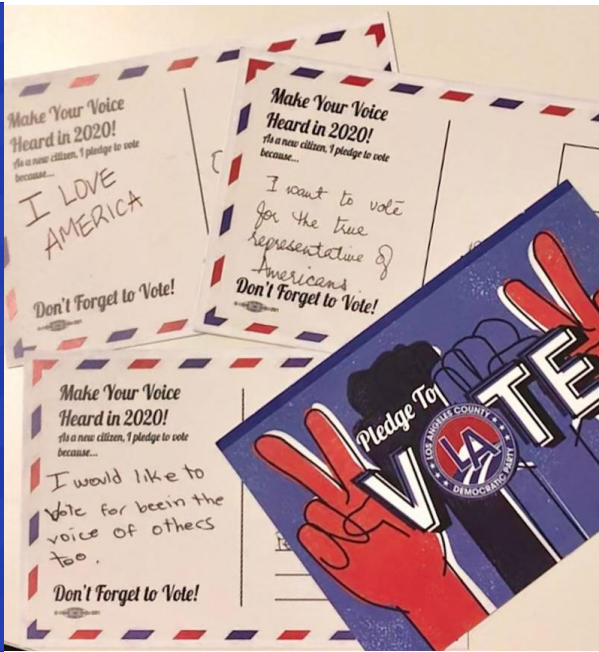 Make Your Voice
Heard in 2020!
As a new citizen, I pledge to vote
because...
I LOVE
AMERICA
Don't Forget to Vote!
Make Your Voice
Heard in 2020!
As a new citizen, I pledge to vote
because...
I want to vote
for the true
representative of
Americans.
Don't Forget to Vote!
Make Your Voice
Heard in 2020!
As a new citizen, I pledge to vote
because...
I would like to
Vote for beein the
voice of others
too.
Don't Forget to Vote!
Pledge To
VOTE
LOS ANGELES COUNTY
LA
DEMOCRATIC PARTY